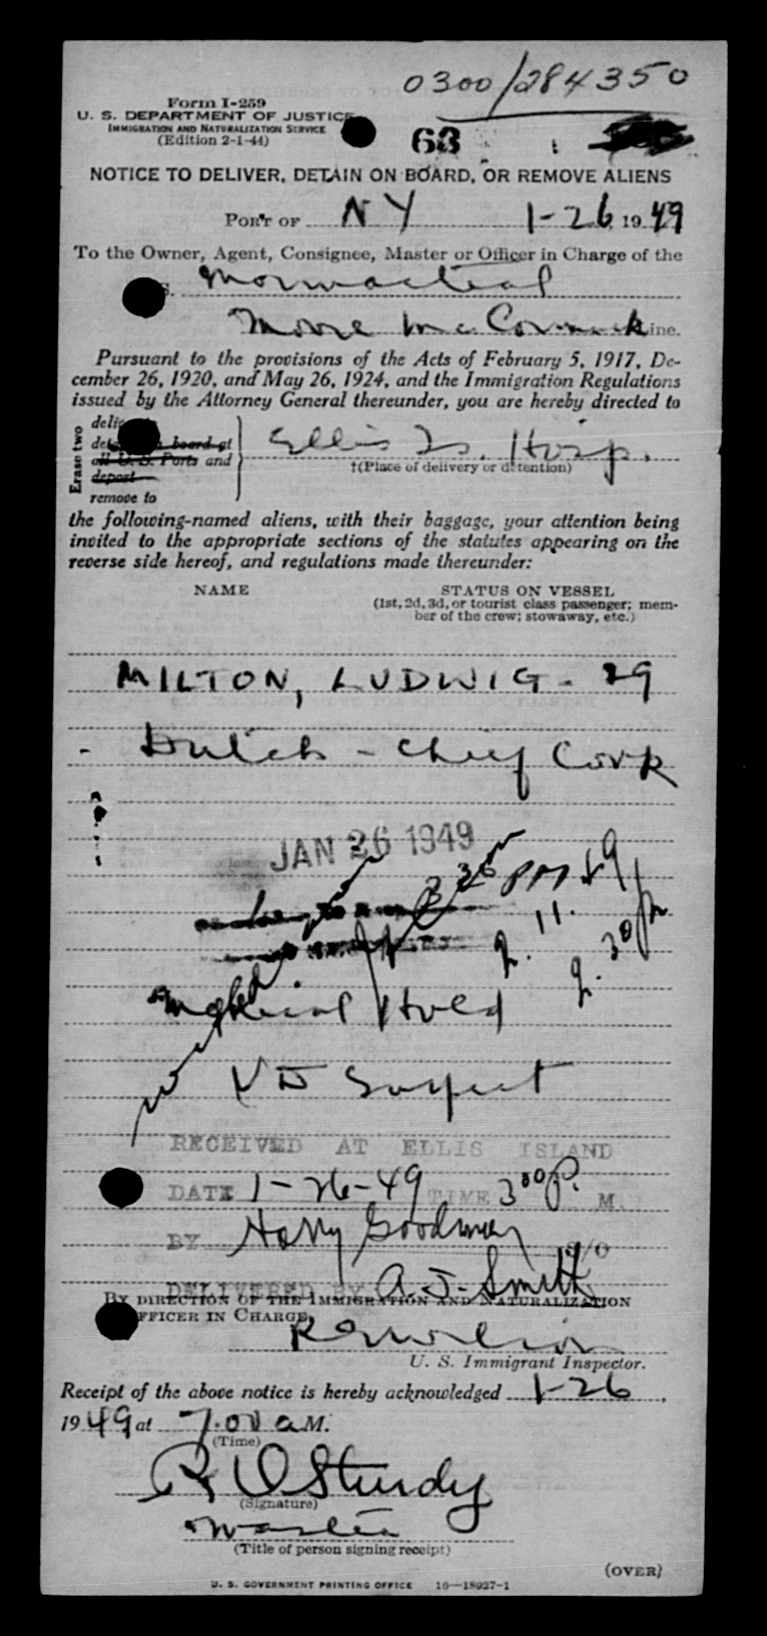 0300/284350
Form I-259
U. S. DEPARTMENT OF JUSTICE
IMMIGRATION AND NATURALIZATION SERVICE
(Edition 2-1-44)
63
NOTICE TO DELIVER, DETAIN ON BOARD, OR REMOVE ALIENS
PORT OF NY 1-26 1949
To the Owner, Agent, Consignee, Master or Officer in Charge of the
S. Mormacteal
Moore McCormack Line.
Pursuant to the provisions of the Acts of February 5, 1917, De-
cember 26, 1920, and May 26, 1924, and the Immigration Regulations
issued by the Attorney General thereunder, you are hereby directed to
Erase two
on board at
all U. S. Ports and
deport
remove to
Ellis Is. Hosp.
†(Place of delivery or detention)
the following-named aliens, with their baggage, your attention being
invited to the appropriate sections of the statutes appearing on the
reverse side hereof, and regulations made thereunder:
NAME STATUS ON VESSEL
(1st, 2d, 3d, or tourist class passenger; mem-
ber of the crew; stowaway, etc.)
MILTON, LUDWIG - 29
- Dutch - Chief Cook
JAN 26 1949
PM
Medical Hold
VD Suspect
RECEIVED AT ELLIS ISLAND
DATE 1-26-49 TIME 3 00 P. M.
BY Harry Goodman
DELIVERED BY A. J. Smith
BY DIRECTION OF THE IMMIGRATION AND NATURALIZATION
OFFICER IN CHARGE,
U. S. Immigrant Inspector.
Receipt of the above notice is hereby acknowledged 1-26,
1949 at 7.00 a M.
(Time)
R O Sturdy
(Signature)
Master
(Title of person signing receipt)
(OVER)
U. S. GOVERNMENT PRINTING OFFICE 16—18927-1